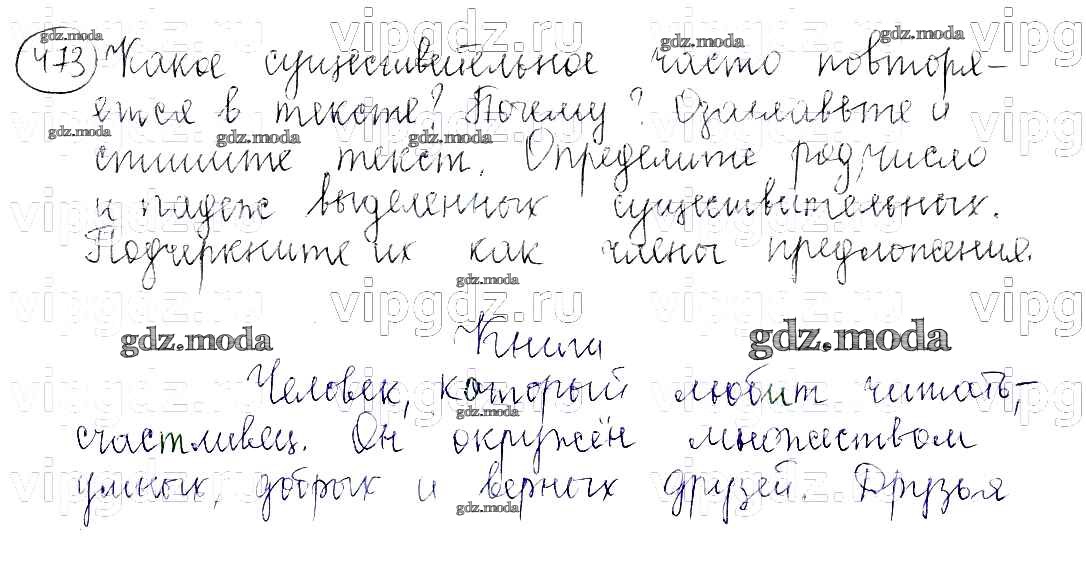 473 Какое существительное часто повторя-
ется в тексте? Почему? Озаглавьте и
спишите текст. Определите род, число
и падеж выделенных существительных.
Подчеркните их как члены предложения.
Книги
Человек, который любит читать, -
счастливец. Он окружён множеством
умных, добрых и верных друзей. Друзья